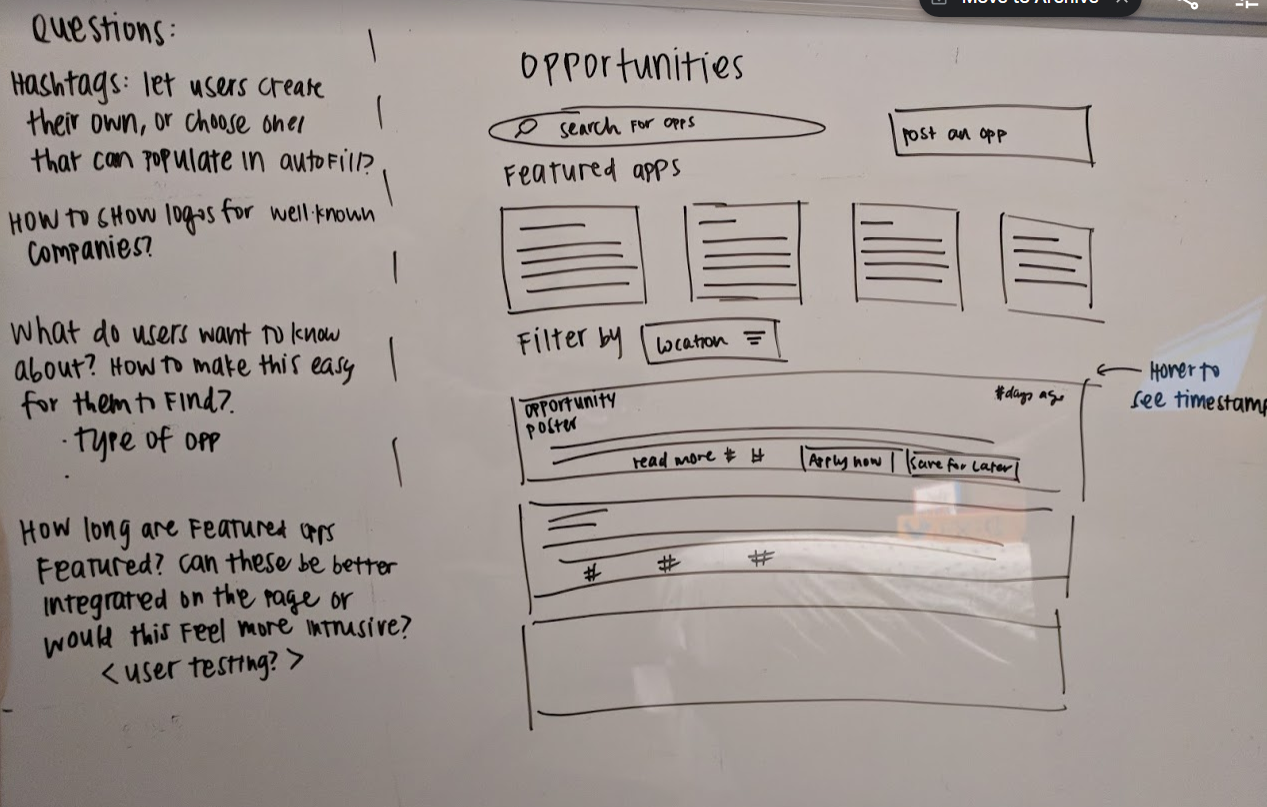 Move to Archive
Questions:
Hashtags: let users create
their own, or choose ones
that can populate in autofill?
How to show logos for well-known
companies?
What do users want to know
about? How to make this easy
for them to find?
· Type of opp
·
How long are featured opps
featured? can these be better
integrated on the page or
would this feel more intrusive?
<user testing?>
opportunities
search for opps
post an opp
Featured apps
Filter by
Location
Hover to
see timestamp
opportunity
poster
#days ago
read more # #
Apply now
Save for Later
# # #